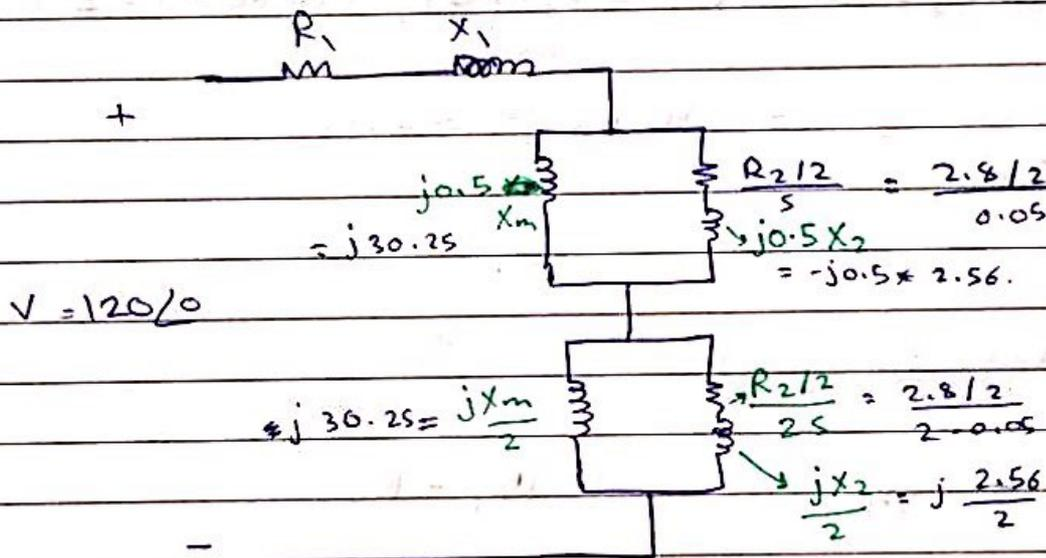 R₁ X₁
+
j0.5
Xm
= j30.25
R₂/2 / s = 2.8/2 / 0.05
j0.5X₂
= -j0.5 * 2.56.
V = 120∠0
j 30.25 = jXm / 2
R₂/2 / 2s = 2.8/2 / 2-0.05
jX₂ / 2 = j 2.56 / 2
-